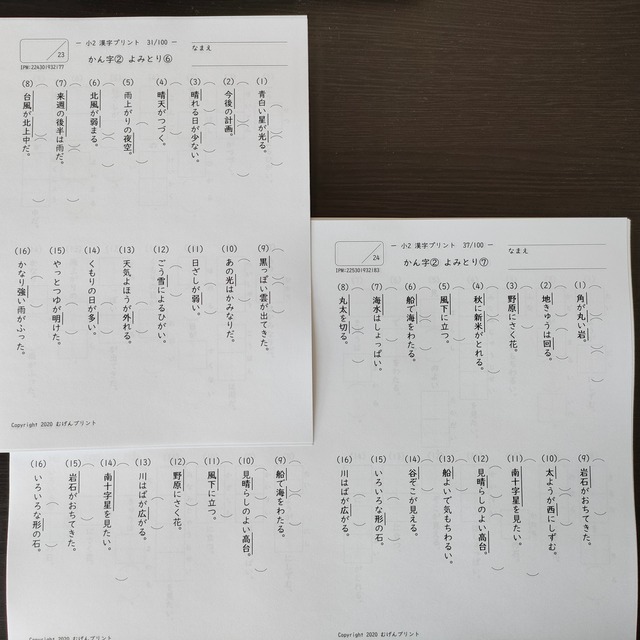 ― 小2 漢字プリント 31/100 ―
かん字② よみとり⑥
なまえ
23
IPN:224301932177
(1) 青白い星が光る。
(2) 今後の計画。
(3) 晴れる日が少ない。
(4) 晴天がつづく。
(5) 雨上がりの夜空。
(6) 北風が弱まる。
(7) 来週の後半は雨だ。
(8) 台風が北上中だ。
(9) 黒っぽい雲が出てきた。
(10) あの光はかみなりだ。
(11) 日ざしが弱い。
(12) ごう雪によるひがい。
(13) 天気よほうが外れる。
(14) くもりの日が多い。
(15) やっとつゆが明けた。
(16) かなり強い雨がふった。
Copyright 2020 むげんプリント
― 小2 漢字プリント 37/100 ―
かん字② よみとり⑦
なまえ
24
IPN:225301932183
(1) 角が丸い岩。
(2) 地きゅうは回る。
(3) 野原にさく花。
(4) 秋に新米がとれる。
(5) 風下に立つ。
(6) 船で海をわたる。
(7) 海水はしょっぱい。
(8) 丸太を切る。
(9) 岩石がおちてきた。
(10) 太ようが西にしずむ。
(11) 南十字星を見たい。
(12) 見晴らしのよい高台。
(13) 船よいで気もちわるい。
(14) 谷ぞこが見える。
(15) いろいろな形の石。
(16) 川はばが広がる。
Copyright 2020 むげんプリント
(9) 船で海をわたる。
(10) 見晴らしのよい高台。
(11) 風下に立つ。
(12) 野原にさく花。
(13) 川はばが広がる。
(14) 南十字星を見たい。
(15) 岩石がおちてきた。
(16) いろいろな形の石。
Copyright 2020 むげんプリント